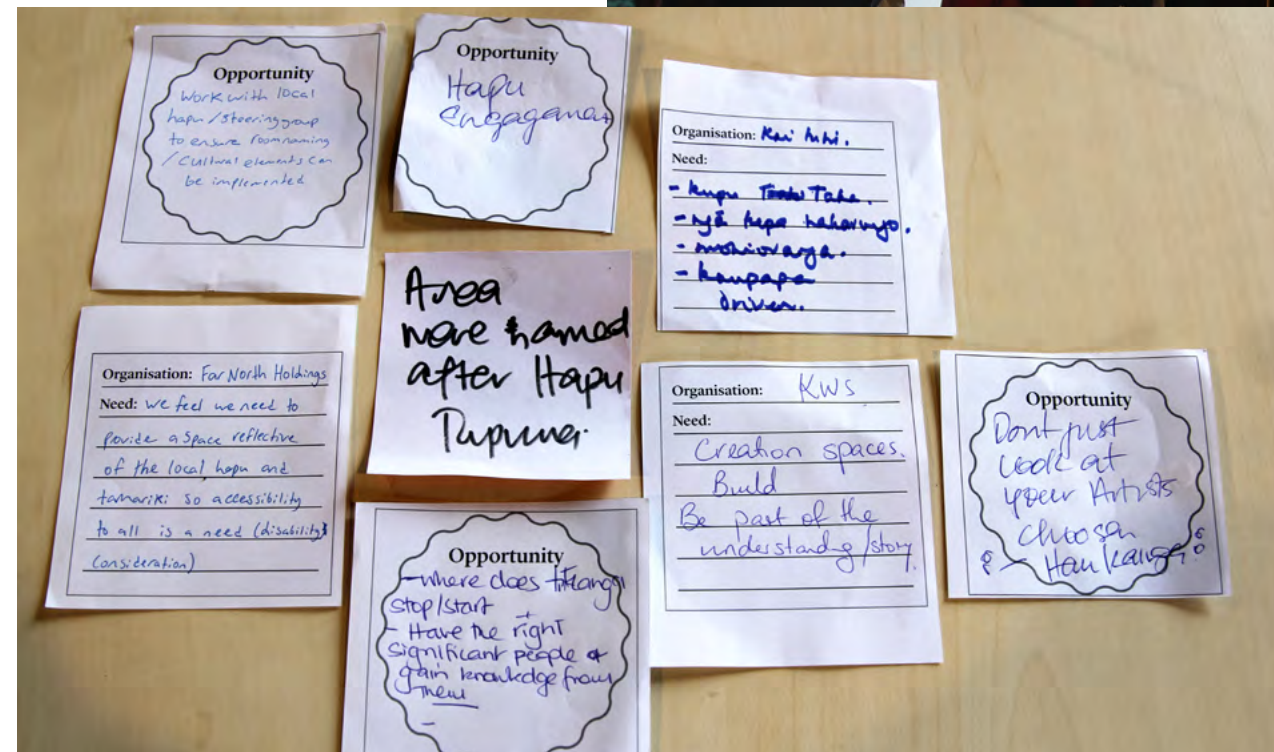 Opportunity
Work with local
hapu / Steering group
to ensure room naming
/ Cultural elements can
be implemented
Opportunity
Hapu
Engagement
Organisation:
Need:
- kupu Taha.
- ngā
-
- kaupapa
driven.
Organisation: Far North Holdings
Need: We feel we need to
povide a space reflective
of the local hapu and
tamariki so accessibility
to all is a need (disability
consideration)
Area
named
after Hapu
Tupuna.
Organisation: KWS
Need:
Creation spaces.
Build
Be part of the
understanding/story.
Opportunity
Dont just
look at
your Artists
choosen
Opportunity
- where does
stop/start
- Have the right
significant people +
gain knowledge from
them
-